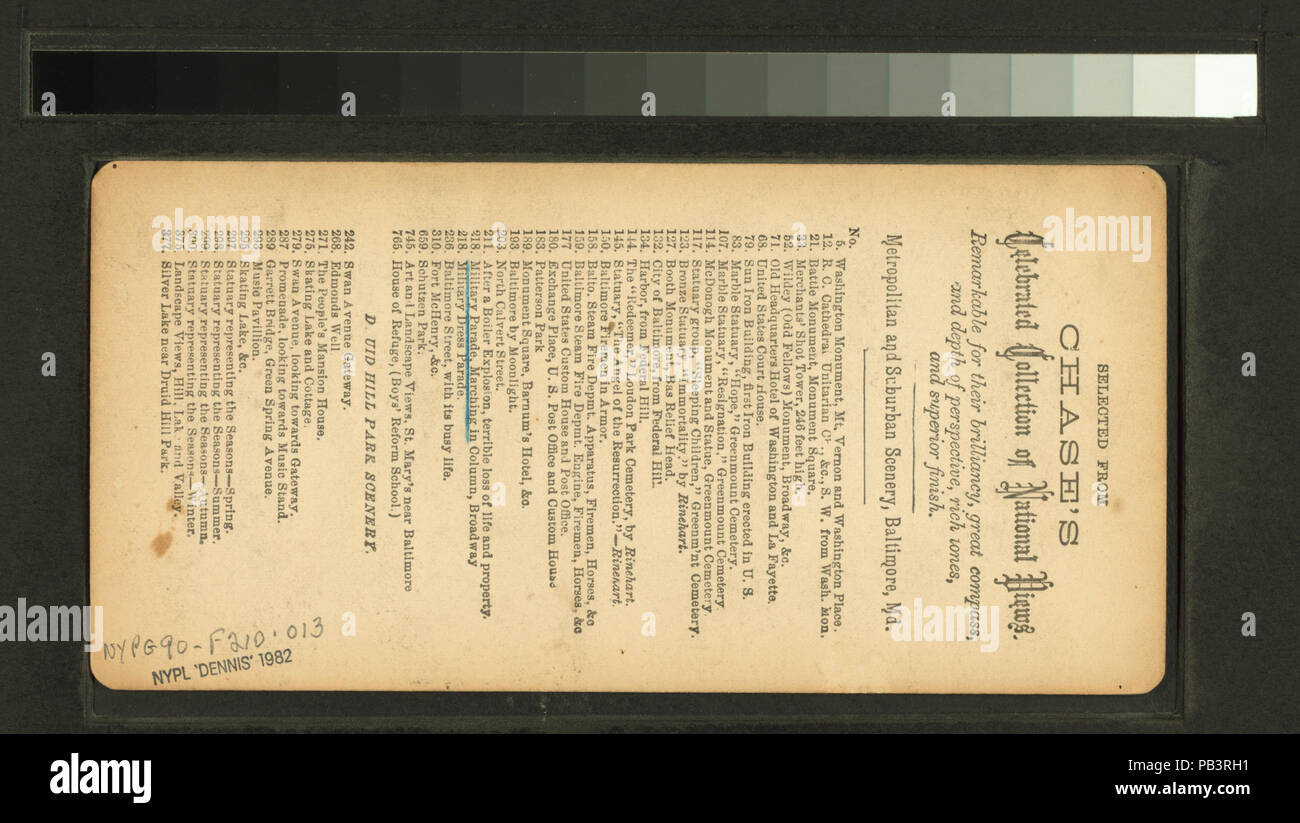 SELECTED FROM
CHASE'S
Celebrated Collection of National Views.
Remarkable for their brilliancy, great compass,
and depth of perspective, rich tones,
and superior finish.
Metropolitan and Suburban Scenery, Baltimore, Md.
No.
5. Washington Monument, Mt. Vernon and Washington Place.
12. R. C. Cathedral Unitarian Ch., &c., S. W. from Wash. Mon.
21. Battle Monument, Monument Square.
33. Merchants' Shot Tower, 246 feet high.
52. Wildey (Odd Fellows) Monument, Broadway, &c.
71. Old Headquarters Hotel of Washington and La Fayette.
68. United States Court House.
79. Sun Iron Building, first Iron Building erected in U. S.
83. Marble Statuary, "Hope," Greenmount Cemetery.
107. Marble Statuary, "Resignation," Greenmount Cemetery
114. McDonogh Monument and Statue, Greenmount Cemetery.
117. Statuary group, "Sleeping Children," Greenm'nt Cemetery.
123. Bronze Statuary, "Immortality," by Rinehart.
127. Booth Monument, Bas Relief Head.
132. City of Baltimore, from Federal Hill.
134. Harbor, from Federal Hill.
144. The "Redeemer," London Park Cemetery, by Rinehart.
145. Statuary, "The Angel of the Resurrection."—Rinehart.
150. Baltimore Firemen in Armor.
158. Balto. Steam Fire Depmt. Apparatus, Firemen, Horses, &c
159. Baltimore Steam Fire Depmt. Engine, Firemen, Horses, &c
177 United States Custom House and Post Office.
180. Exchange Place, U. S. Post Office and Custom House
183 Patterson Park
189 Monument Square, Barnum's Hotel, &c.
193 Baltimore by Moonlight.
203. North Calvert Street.
211. After a Boiler Explosion, terrible loss of life and property.
218 Military Parade, Marching in Column, Broadway
218. Military Dress Parade.
236 Baltimore Street, with its busy life.
310. Fort McHenry, &c.
659 Schutzen Park.
745. Art and Landscape Views, St. Mary's near Baltimore
765 House of Refuge, (Boys' Reform School.)
D UID HILL PARK SCENERY.
242. Swan Avenue Gateway.
268. Edmonds Well
271. The People's Mansion House.
275. Skating Lake and Cottage.
279. Swan Avenue, looking towards Gateway.
287 Promenade, looking towards Music Stand.
289 Garrett Bridge, Green Spring Avenue.
293 Music Pavillion.
295. Skating Lake, &c.
297. Statuary representing the Seasons—Spring.
298. Statuary representing the Seasons—Summer.
299 Statuary representing the Seasons—Autumn.
300. Statuary representing the Seasons—Winter.
375. Landscape Views, Hill, Lake and Valley.
377. Silver Lake near Druid Hill Park.
NYPG90-F210·013
NYPL 'DENNIS' 1982
alamy
Image ID: PB3RH1
www.alamy.com